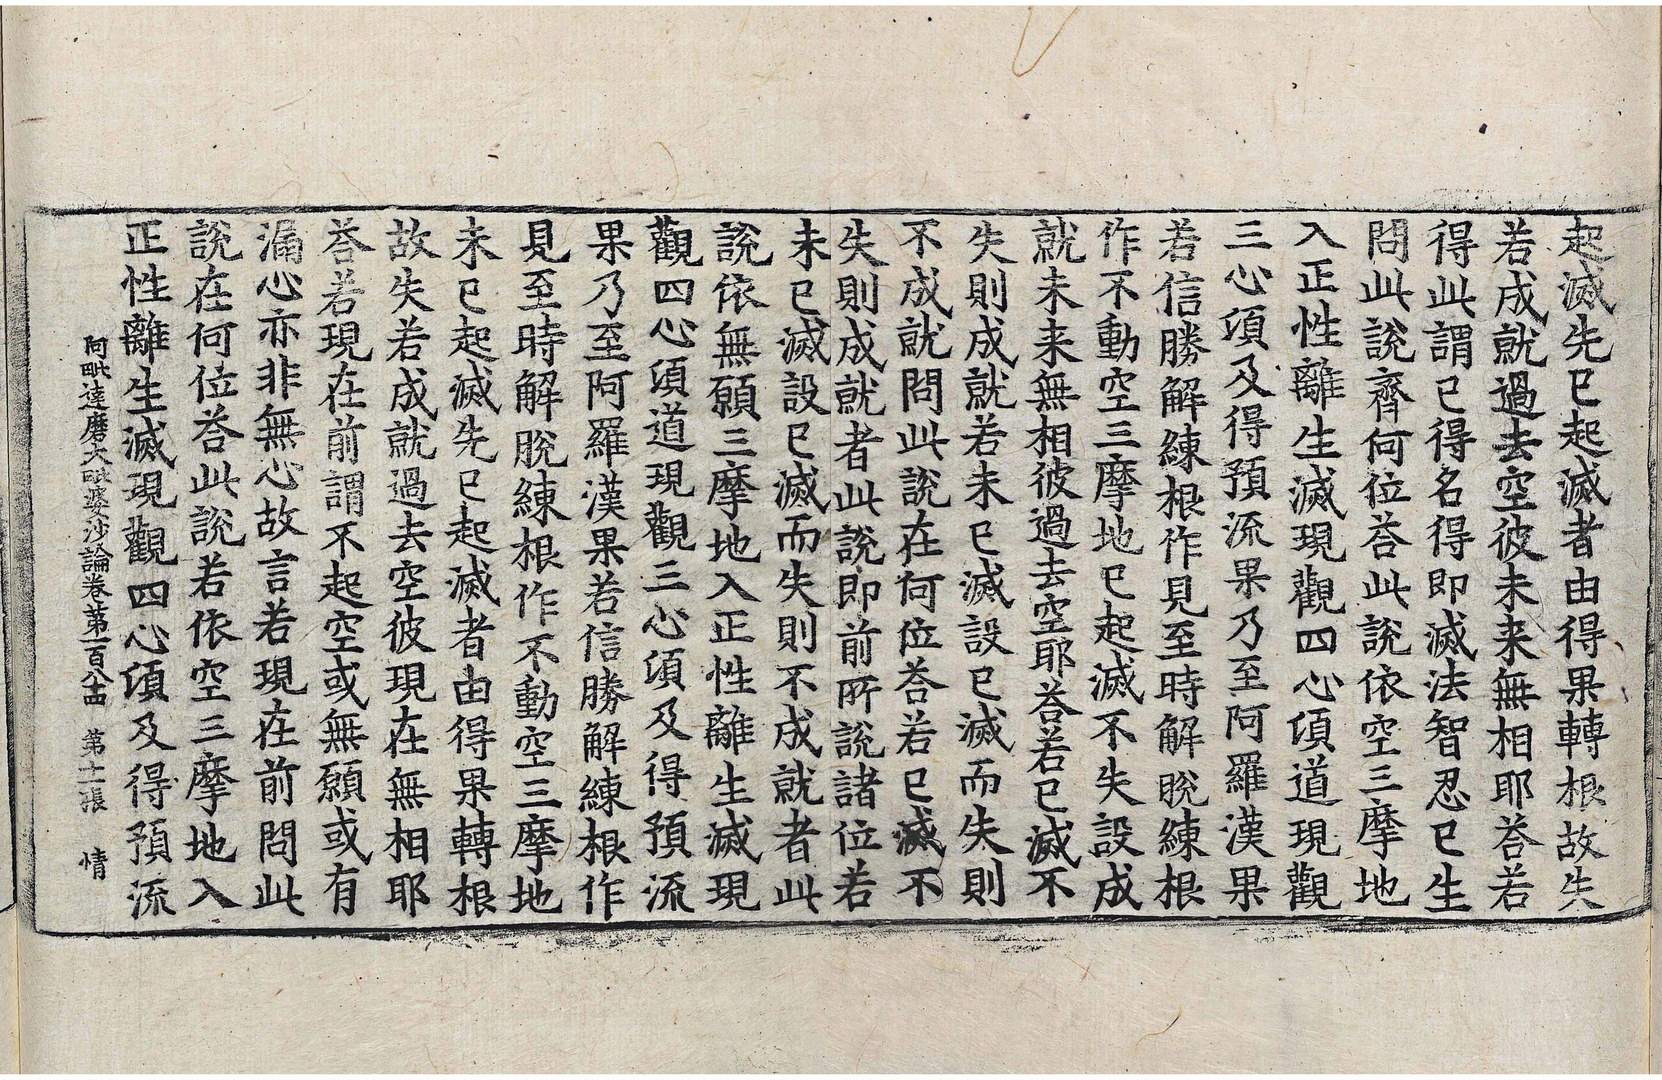 起滅先已起滅者由得果轉根故失
若成就過去空彼未来無相耶荅若
得此謂已得名得即滅法智忍已生
問此說齊何位荅此說依空三摩地
入正性離生滅現觀四心湏道現觀
三心湏及得預流果乃至阿羅漢果
若信勝解練根作見至時解脫練根
作不動空三摩地已起滅不失設成
就未来無相彼過去空耶荅若已滅不
失則成就若未已滅設已滅而失則
不成就問此說在何位荅若已滅不
失則成就者此說即前所說諸位若
未已滅設已滅而失則不成就者此
說依無願三摩地入正性離生滅現
觀四心湏道現觀三心湏及得預流
果乃至阿羅漢果若信勝解練根作
見至時解脫練根作不動空三摩地
未已起滅先已起滅者由得果轉根
故失若成就過去空彼現在無相耶
荅若現在前謂不起空或無願或有
漏心亦非無心故言若現在前問此
說在何位荅此說若依空三摩地入
正性離生滅現觀四心湏及得預流
阿毗達磨大毗婆沙論卷第一百八十四 第十一張 情